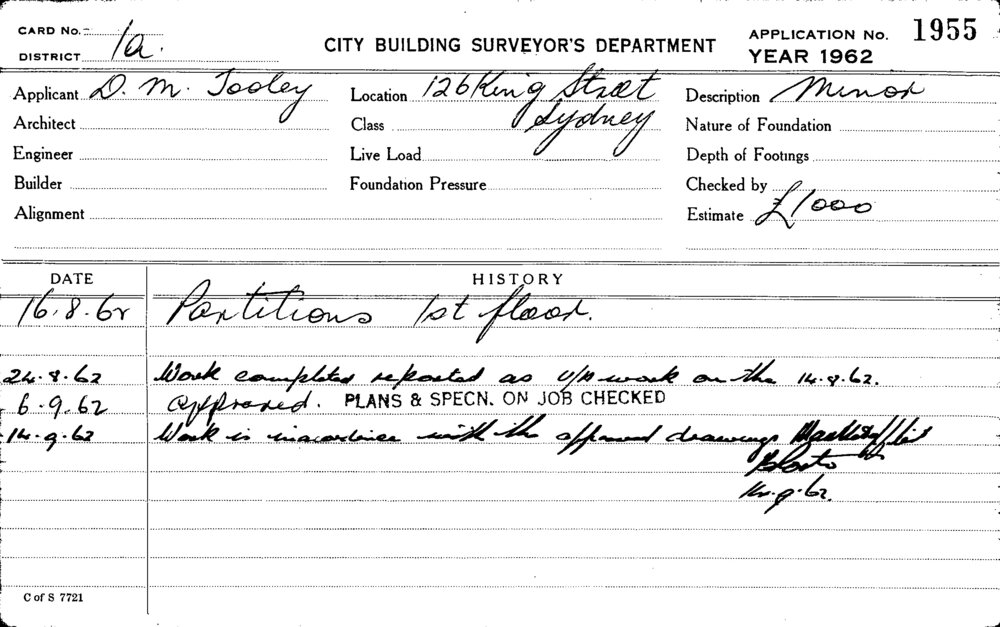 CARD No. 1a. CITY BUILDING SURVEYOR'S DEPARTMENT APPLICATION No. 1955
DISTRICT YEAR 1962
Applicant D. M. Tooley Location 126 King Street Description Minor
Architect Class Sydney Nature of Foundation
Engineer Live Load Depth of Footings
Builder Foundation Pressure Checked by
Alignment Estimate £1000
DATE HISTORY
16.8.62 Partitions 1st floor.
24.8.62 Work completed reported as U/A work on the 14.8.62.
6.9.62 approved. PLANS & SPECN. ON JOB CHECKED
14.9.62 Work is inaccordance with the approved drawings
14.9.62.
C of S 7721